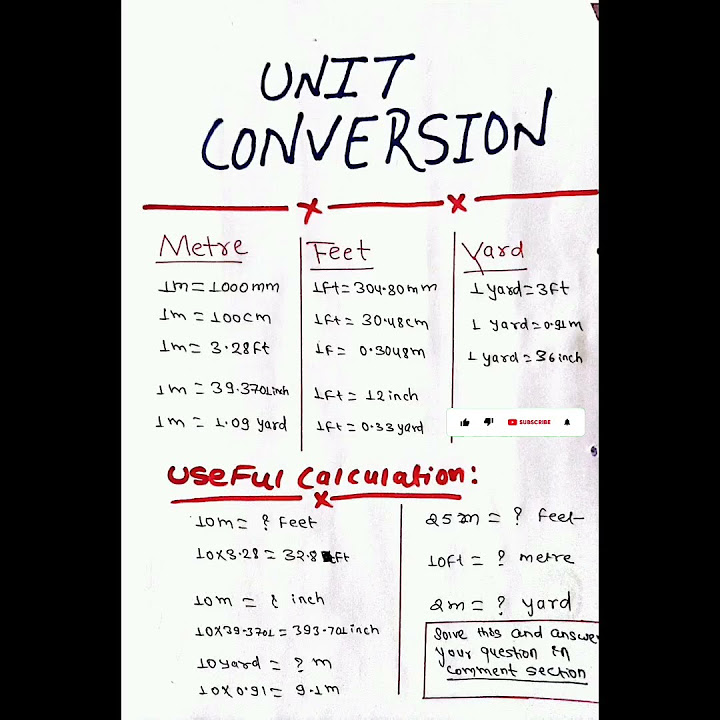 UNIT
CONVERSION
Metre
1m = 1000mm
1m = 100cm
1m = 3.28ft
1m = 39.3701inch
1m = 1.09 yard
Feet
1ft = 304.80mm
1ft = 30.48cm
1f = 0.3048m
1ft = 12inch
1ft = 0.33yard
Yard
1 yard = 3ft
1 yard = 0.91m
1 yard = 36inch
SUBSCRIBE
Useful Calculation:
10m = ? Feet
10x3.28 = 32.8 ft
10m = ? inch
10x39.3701 = 393.701inch
10yard = ? m
10x0.91 = 9.1m
25m = ? feet
10ft = ? metre
2m = ? yard
Solve this and answer
your question in
comment section